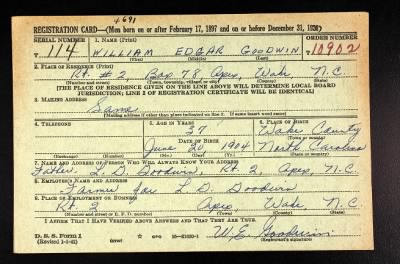 4691
REGISTRATION CARD—(Men born on or after February 17, 1897 and on or before December 31, 1920)
SERIAL NUMBER 1. NAME (Print) ORDER NUMBER
114 WILLIAM EDGAR GOODWIN 10902
(First) (Middle) (Last)
2. PLACE OF RESIDENCE (Print)
Rt. #2, Box 78, Apex, Wake, N.C.
(Number and street) (Town, township, village, or city) (County) (State)
[THE PLACE OF RESIDENCE GIVEN ON THE LINE ABOVE WILL DETERMINE LOCAL BOARD
JURISDICTION; LINE 2 OF REGISTRATION CERTIFICATE WILL BE IDENTICAL]
3. MAILING ADDRESS
Same
[Mailing address if other than place indicated on line 2. If same insert word same]
4. TELEPHONE 5. AGE IN YEARS 6. PLACE OF BIRTH
37 Wake County
DATE OF BIRTH (Town or county)
June 20, 1904 North Carolina
(Exchange) (Number) (Mo.) (Day) (Yr.) (State or country)
7. NAME AND ADDRESS OF PERSON WHO WILL ALWAYS KNOW YOUR ADDRESS
Father, L. D. Goodwin, Rt. 2, Apex, N.C.
8. EMPLOYER'S NAME AND ADDRESS
Farmer for L. D. Goodwin
9. PLACE OF EMPLOYMENT OR BUSINESS
Rt. 2 Apex Wake N.C.
(Number and street or R. F. D. number) (Town) (County) (State)
I AFFIRM THAT I HAVE VERIFIED ABOVE ANSWERS AND THAT THEY ARE TRUE.
D. S. S. Form 1
(Revised 1-1-42) (over) W. E. Goodwin
(Registrant's signature)